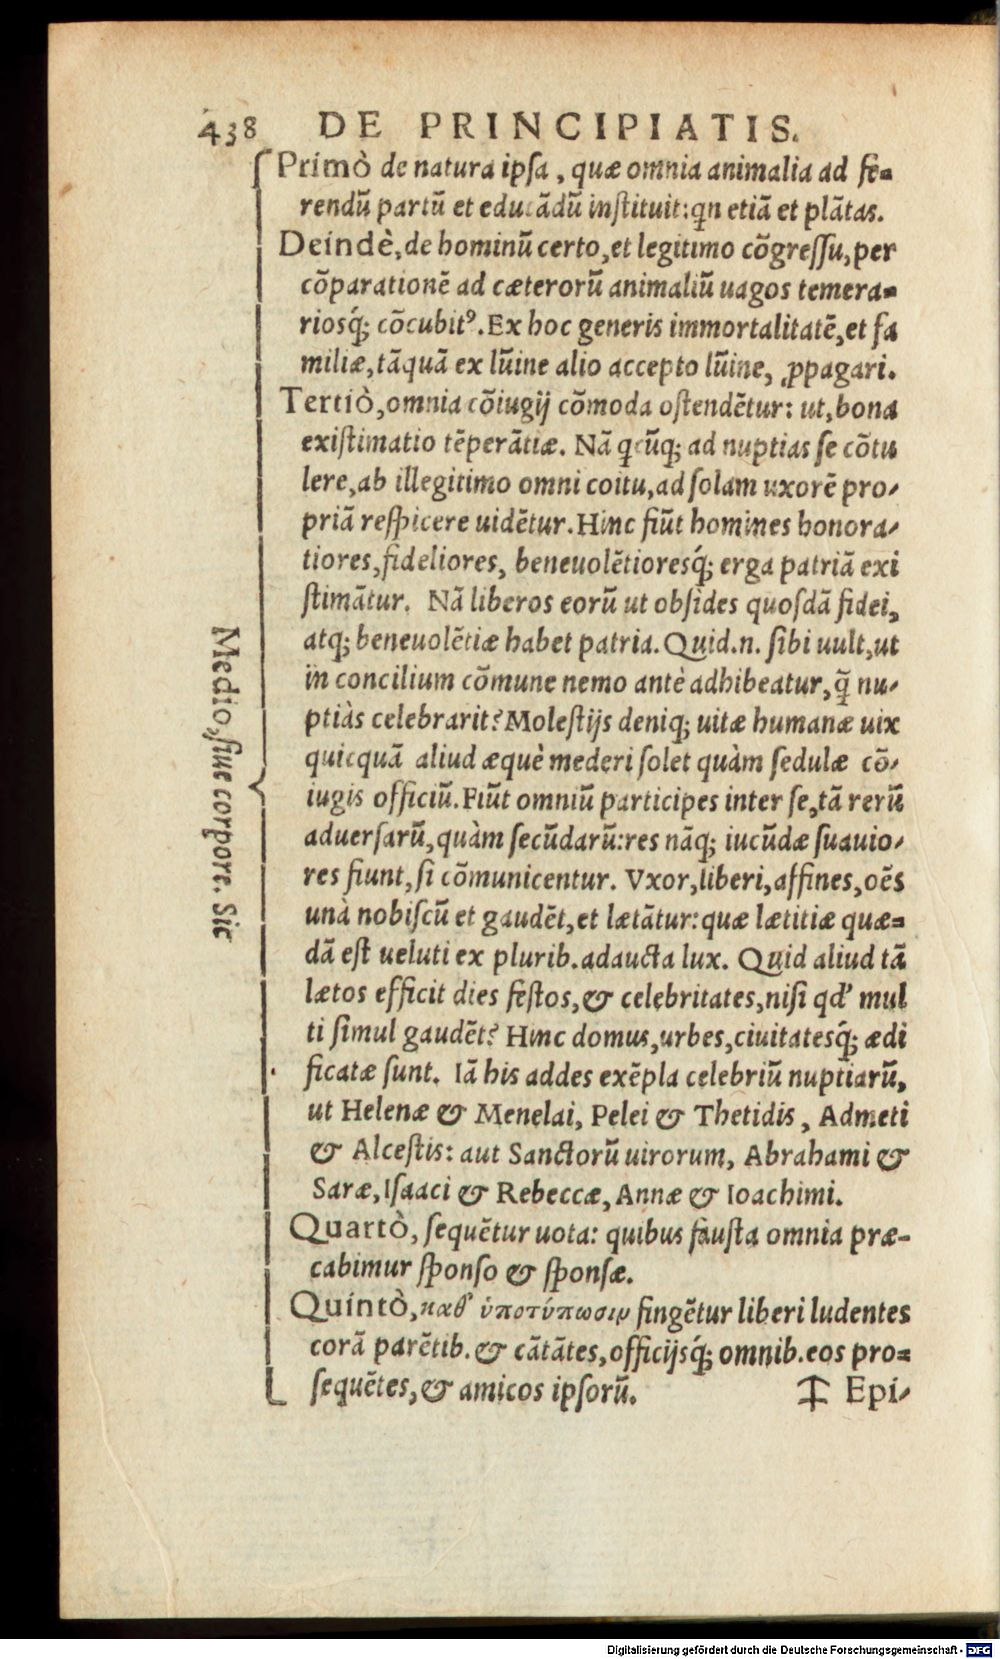 438 DE PRINCIPIATIS.
Primò de natura ipſa, quæ omnia animalia ad fe=
rendũ partũ et educãdũ inſtituit: qn etiã et plãtas.
Deindè, de hominũ certo, et legitimo cõgreſſu, per
cõparationẽ ad cæterorũ animaliũ uagos temera=
riosq́; cõcubitꝰ. Ex hoc generis immortalitatẽ, et fa
miliæ, tãquã ex lũine alio accepto lũine, ꝓpagari.
Tertiò, omnia cõiugij cõmoda oſtendẽtur: ut, bona
exiſtimatio tẽperãtiæ. Nã qcũq; ad nuptias ſe cõtu
lere, ab illegitimo omni coitu, ad ſolam uxorẽ pro-
priã reſpicere uidẽtur. Hinc fiũt homines honora-
tiores, fideliores, beneuolẽtioresq́; erga patriã exi
ſtimãtur. Nã liberos eorũ ut obſides quoſdã fidei,
atq; beneuolẽtiæ habet patria. Quid.n. ſibi uult, ut
in concilium cõmune nemo antè adhibeatur, q̃ nu-
ptiàs celebrarit? Moleſtijs deniq; uitæ humanæ uix
quicquã aliud æquè mederi ſolet quàm ſedulæ cõ-
iugis officiũ. Fiũt omniũ participes inter ſe, tã rerũ
aduerſarũ, quàm ſecũdarũ: res nãq; iucũdæ ſuauio-
res fiunt, ſi cõmunicentur. Vxor, liberi, affines, oẽs
unà nobiſcũ et gaudẽt, et lætãtur: quæ lætitiæ quæ=
dã eſt ueluti ex plurib. adaucta lux. Quid aliud tã
lætos efficit dies feſtos, & celebritates, niſi qd' mul
ti ſimul gaudẽt? Hinc domus, urbes, ciuitatesq́; ædi
ficatæ ſunt. Iã his addes exẽpla celebriũ nuptiarũ,
ut Helenæ & Menelai, Pelei & Thetidis, Admeti
& Alceſtis: aut Sanctorũ uirorum, Abrahami &
Saræ, Iſaaci & Rebeccæ, Annæ & Ioachimi.
Quartò, ſequẽtur uota: quibus fauſta omnia præ-
cabimur ſponſo & ſponſæ.
Quintò, καθ' ὑποτύπωσιν fingẽtur liberi ludentes
corã parẽtib. & cãtãtes, officijsq́; omnib. eos pro=
ſequẽtes, & amicos ipſorũ. ‡ Epi-
Medio, ſiue corpore. Sic
Digitalisierung gefördert durch die Deutsche Forschungsgemeinschaft - DFG